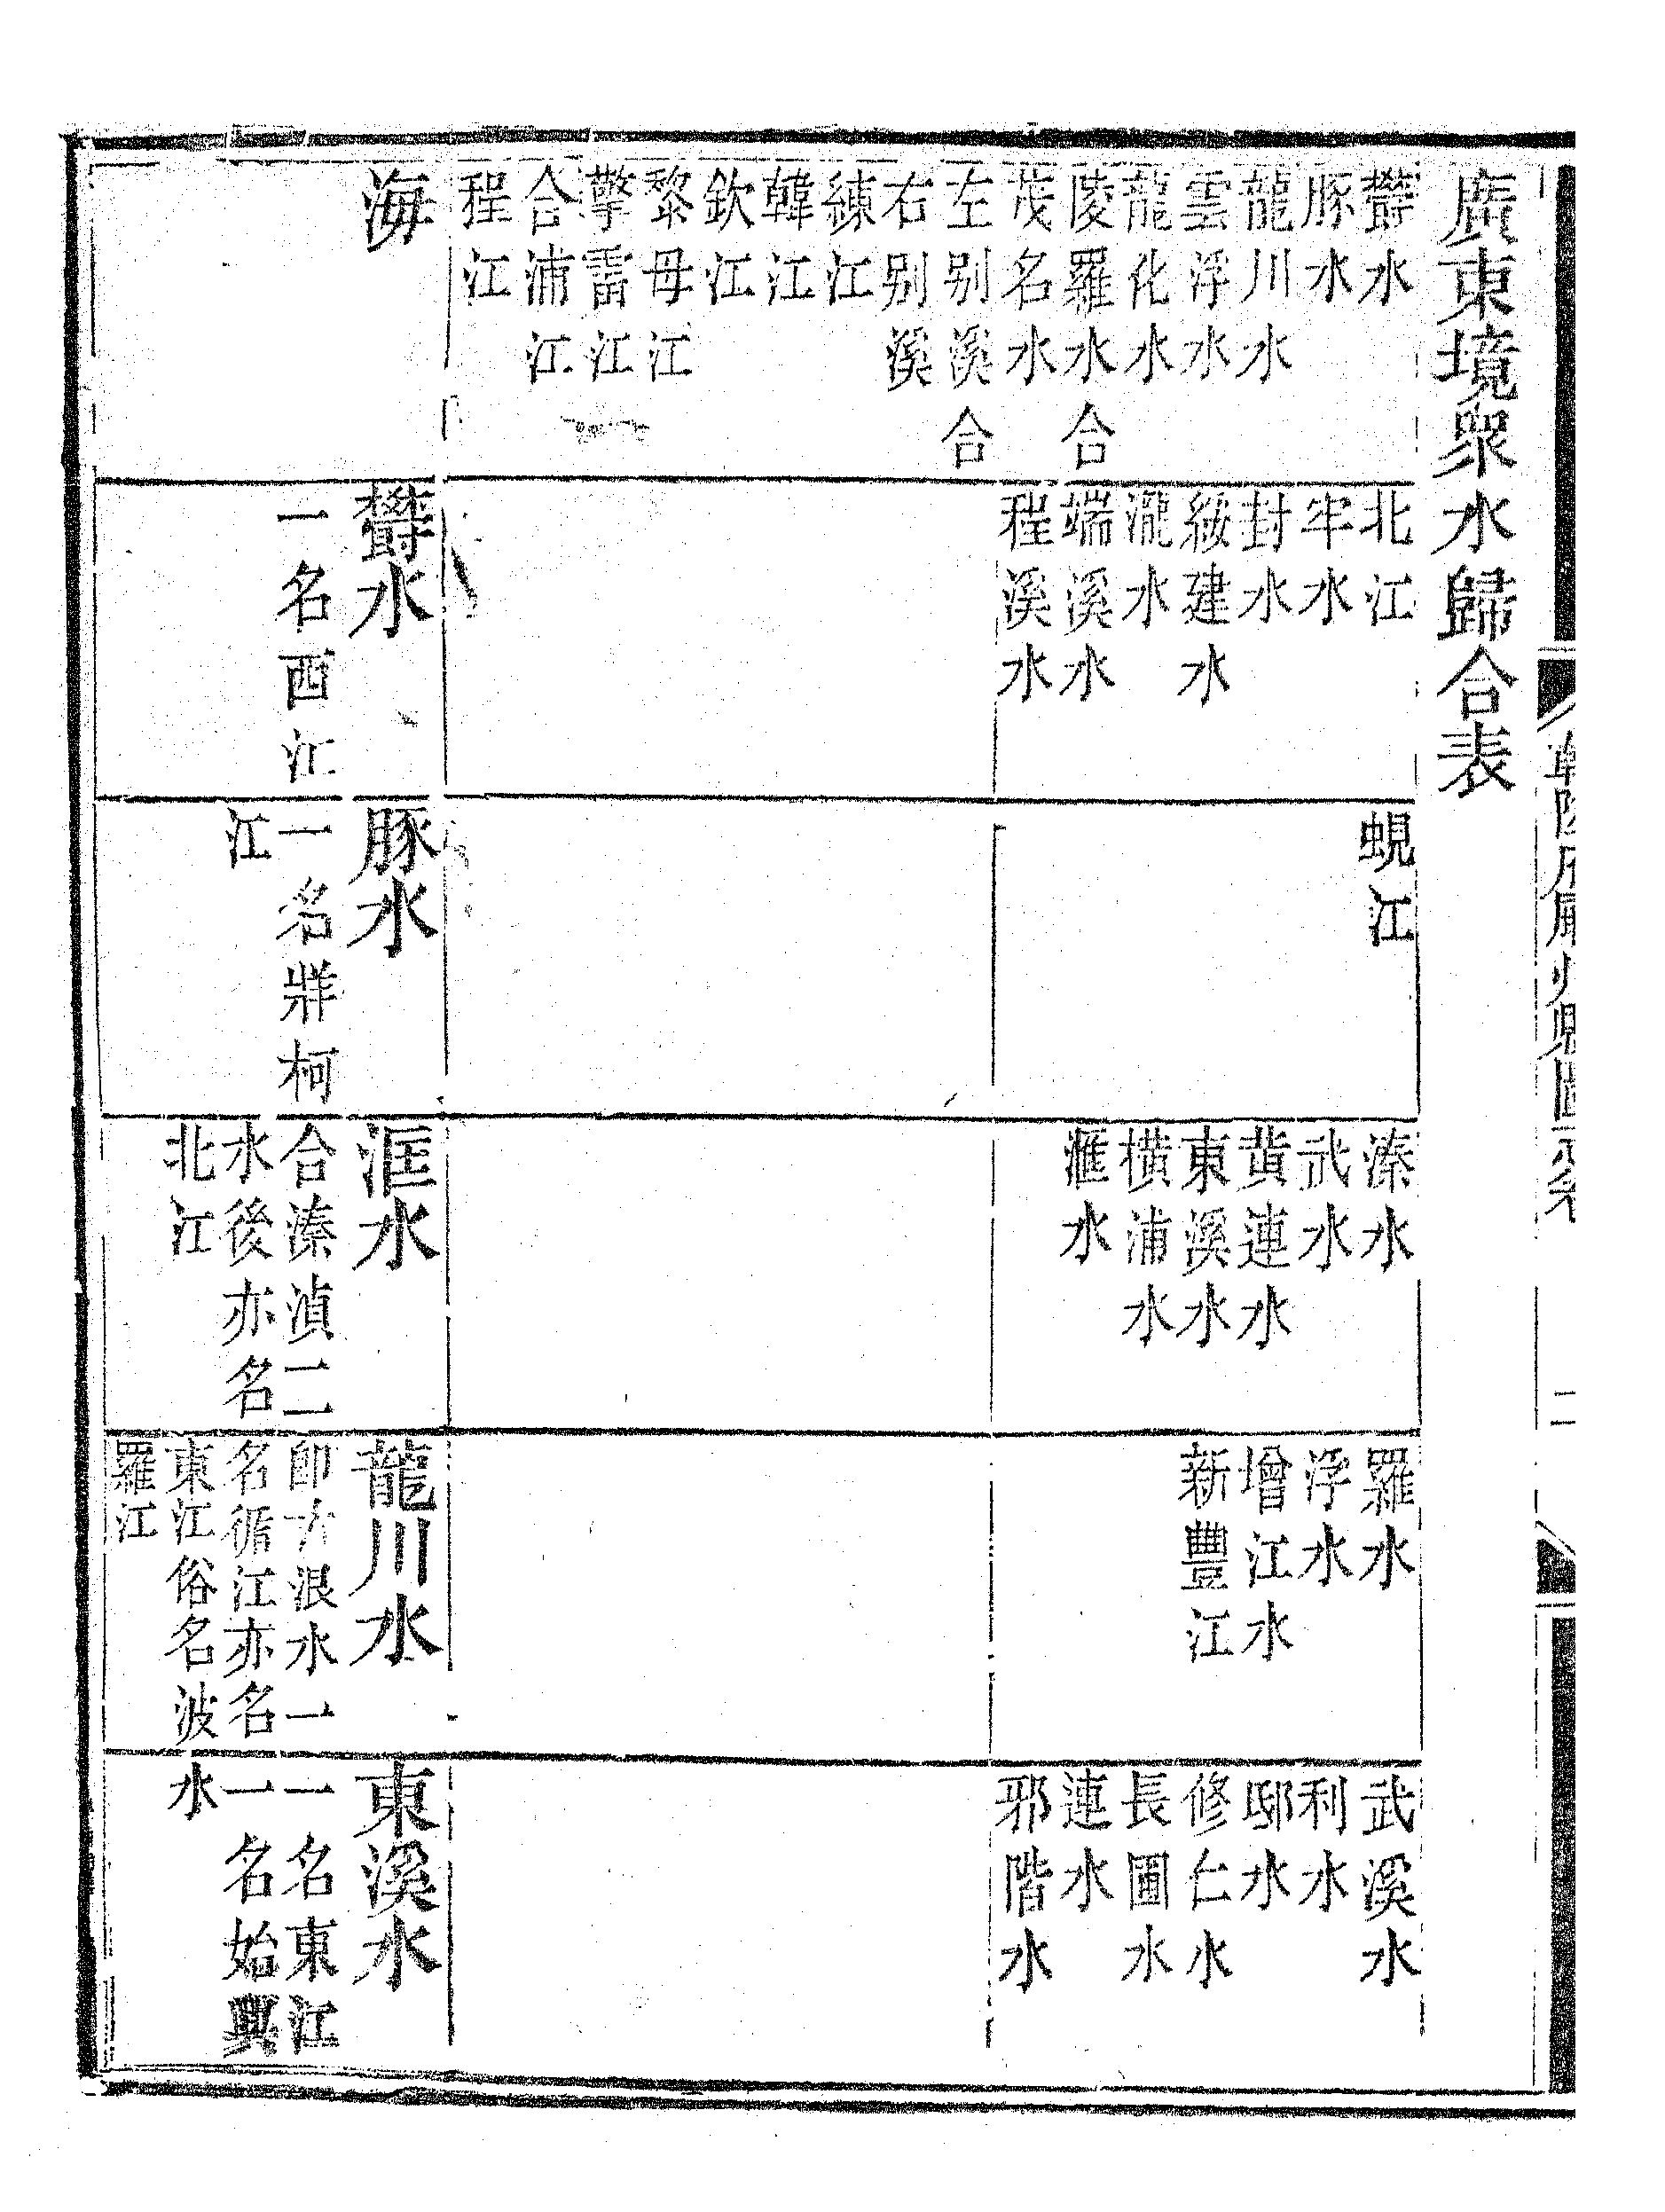 廣東境衆水歸合表
欝水
豚水
龍川水
雲浮水
龍化水
陵羅水合
茂名水
左别溪合
右别溪
練江
韓江
欽江
黎母江
擎雷江
合浦江
程江
海
北江
牢水
封水
綏建水
瀧水
端溪水
程溪水
欝水
一名西江
蜆江
豚水
一名牂柯
江
溱水
武水
黄連水
東溪水
横浦水
滙水
洭水
合溱湞二
水後亦名
北江
羅水
浮水
增江水
新豐江
龍川水
即古泿水一
名循江亦名
東江俗名波
羅江
武溪水
利水
邸水
修仁水
長圃水
連水
邪階水
東溪水
一名東江
一名始興
水
二